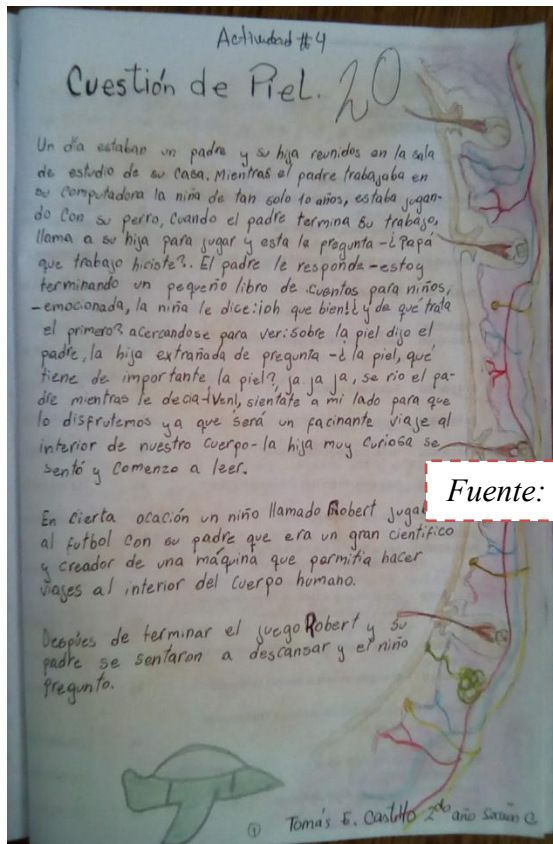 Actividad #4
Cuestión de Piel. 20
Un día estaban un padre y su hija reunidos en la sala
de estudio de su casa. Mientras el padre trabajaba en
su computadora la niña de tan solo 10 años, estaba jugan-
do con su perro, cuando el padre termina su trabajo,
llama a su hija para jugar y esta le pregunta -¿Papá
que trabajo hiciste?. El padre le responde -estoy
terminando un pequeño libro de cuentos para niños,
-emocionada, la niña le dice:¡oh que bien!¿y de qué trata
el primero? acercandose para ver:Sobre la piel dijo el
padre, la hija extrañada de pregunta -¿la piel, qué
tiene de importante la piel? ja ja ja, se rio el pa-
dre mientras le decia-¡Ven!, sientate a mi lado para que
lo disfrutemos ya que será un facinante viaje al
interior de nuestro cuerpo-la hija muy curiosa se
sentó y comenzo a leer.
Fuente:
En cierta ocación un niño llamado Robert
al futbol con su padre que era un gran científico
y creador de una máquina que permitia hacer
viajes al interior del cuerpo humano.
Después de terminar el juego Robert y su
padre se sentaron a descansar y el niño
pregunto.
① Tomás E. Castillo 2do año Sección C